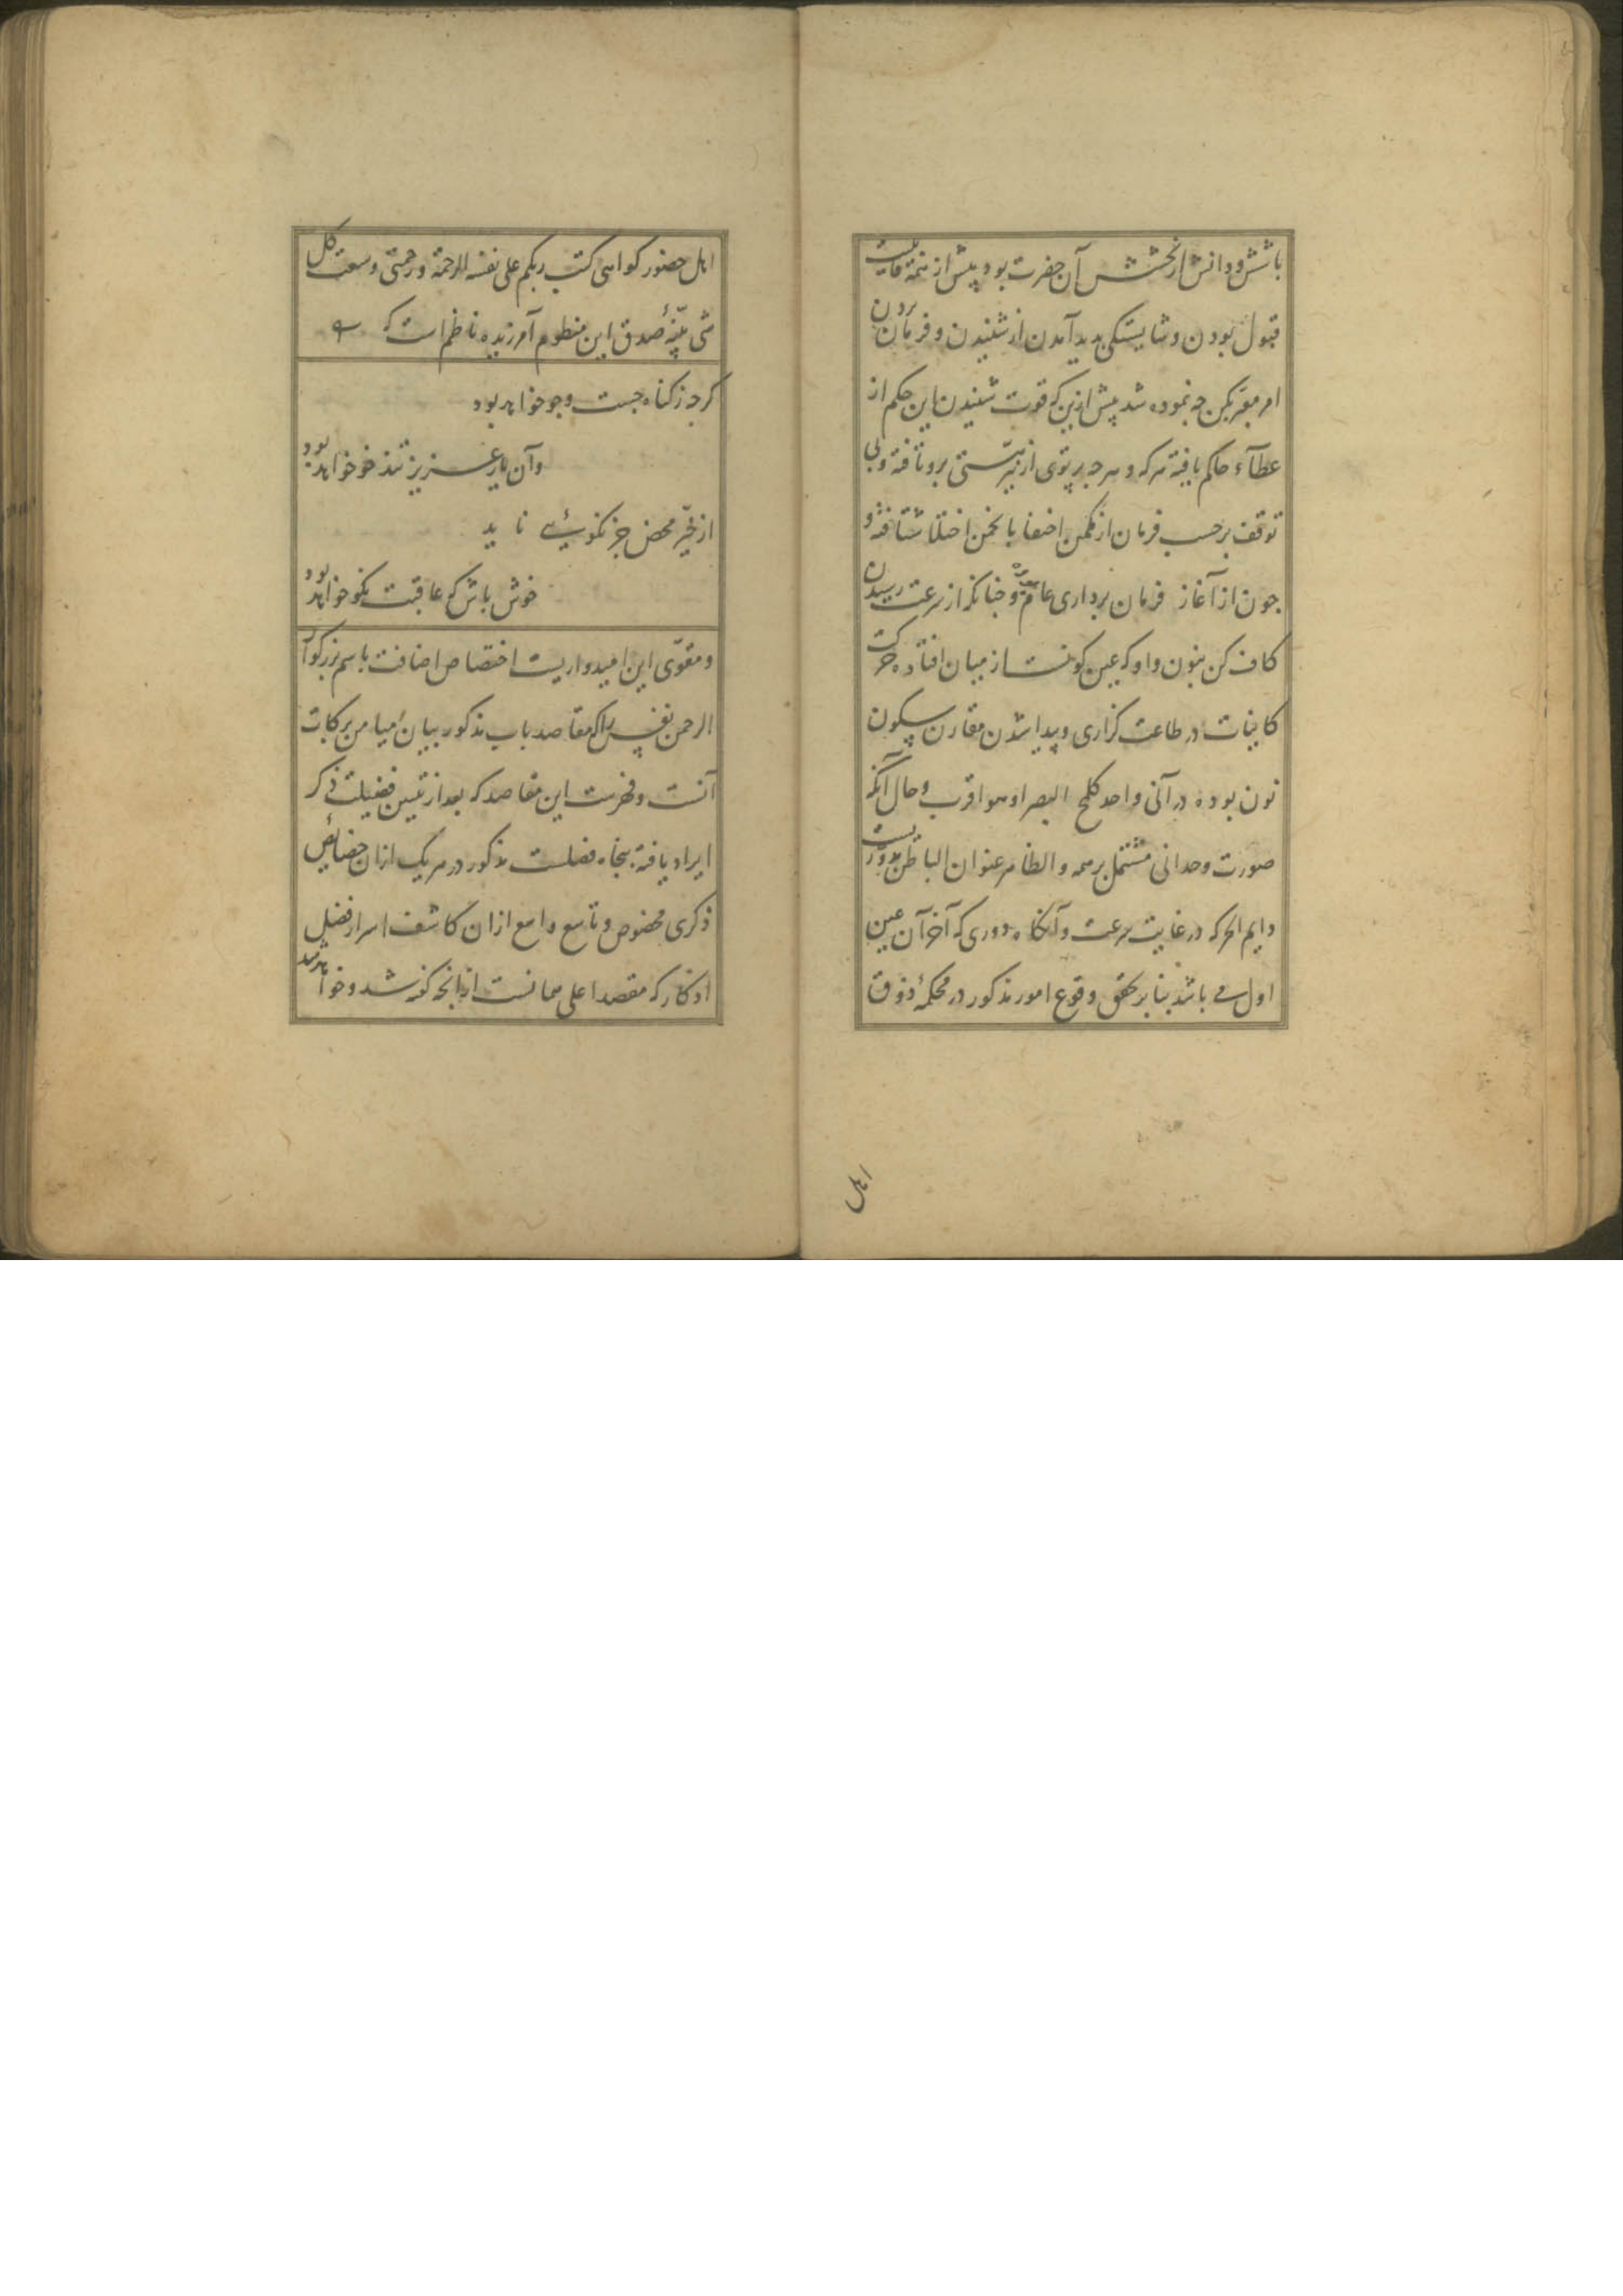 باشش و دانش از بخشش آن حضرت بود پیش از همه قابلیت
قبول بودن و شایستکی بدید آمدن از شنیدن و فرمان بردن
امر معبر بکن جه نموده شد پیش ازین که قوت شنیدن این حکم از
عطآء حاکم یافته هرکه و هرجه برتوی از هستی برو تافته و بی
توقف برحسب فرمان از مکمن اختفا بانجمن شتافته و
جون از آغاز فرمان برداری عام و جنانکه از سرعت رسیدن
کاف کن بنون واو که عین کونست از میان افتاده حرکت
کاینات در طاعت کزاری و پیدا شدن مقارن سکون
نون بوده در آنی واحد کلمح البصر او هو اقرب و حال آنکه
صورت وحدانی مشتمل بر همه و الظاهر عنوان الباطن دوریست
دایم الحرکه در غایت سرعت و آنکاه دوری که آخر آن عین
اول می باشد بنابر تحقق وقوع امور مذکور در محکمهٔ ذوق
اهل
اهل حضور کواهی کتب ربکم علی نفسه الرحمة و رحمتی وسعت کل
شی بینهٔ صدق این منظوم آمرزیده ناظم است که
کرجه ز کناه جست وجو خواهد بود
وآن یار عزیز تند خو خواهد بود
از خیر محض جز نکوئی ناید
خوش باش که عاقبت نکو خواهد بود
و مقوّی این امیدواریست اختصاص اضافت باسم بزرکوار
الرحمن نفس را که مقاصد باب مذکور بیان میامن برکات
آنست و فهرست این مقاصد که بعد از تبیین فضیلت ذکر
ایراد یافته بنجاه فصلست مذکور در هریک ازان خصایص
ذکری مخصوص و تاسع ازان کاشف اسرار فضل
اذکار که مقصد اعلی همانست از آنجه کفته شد و خواهد شد